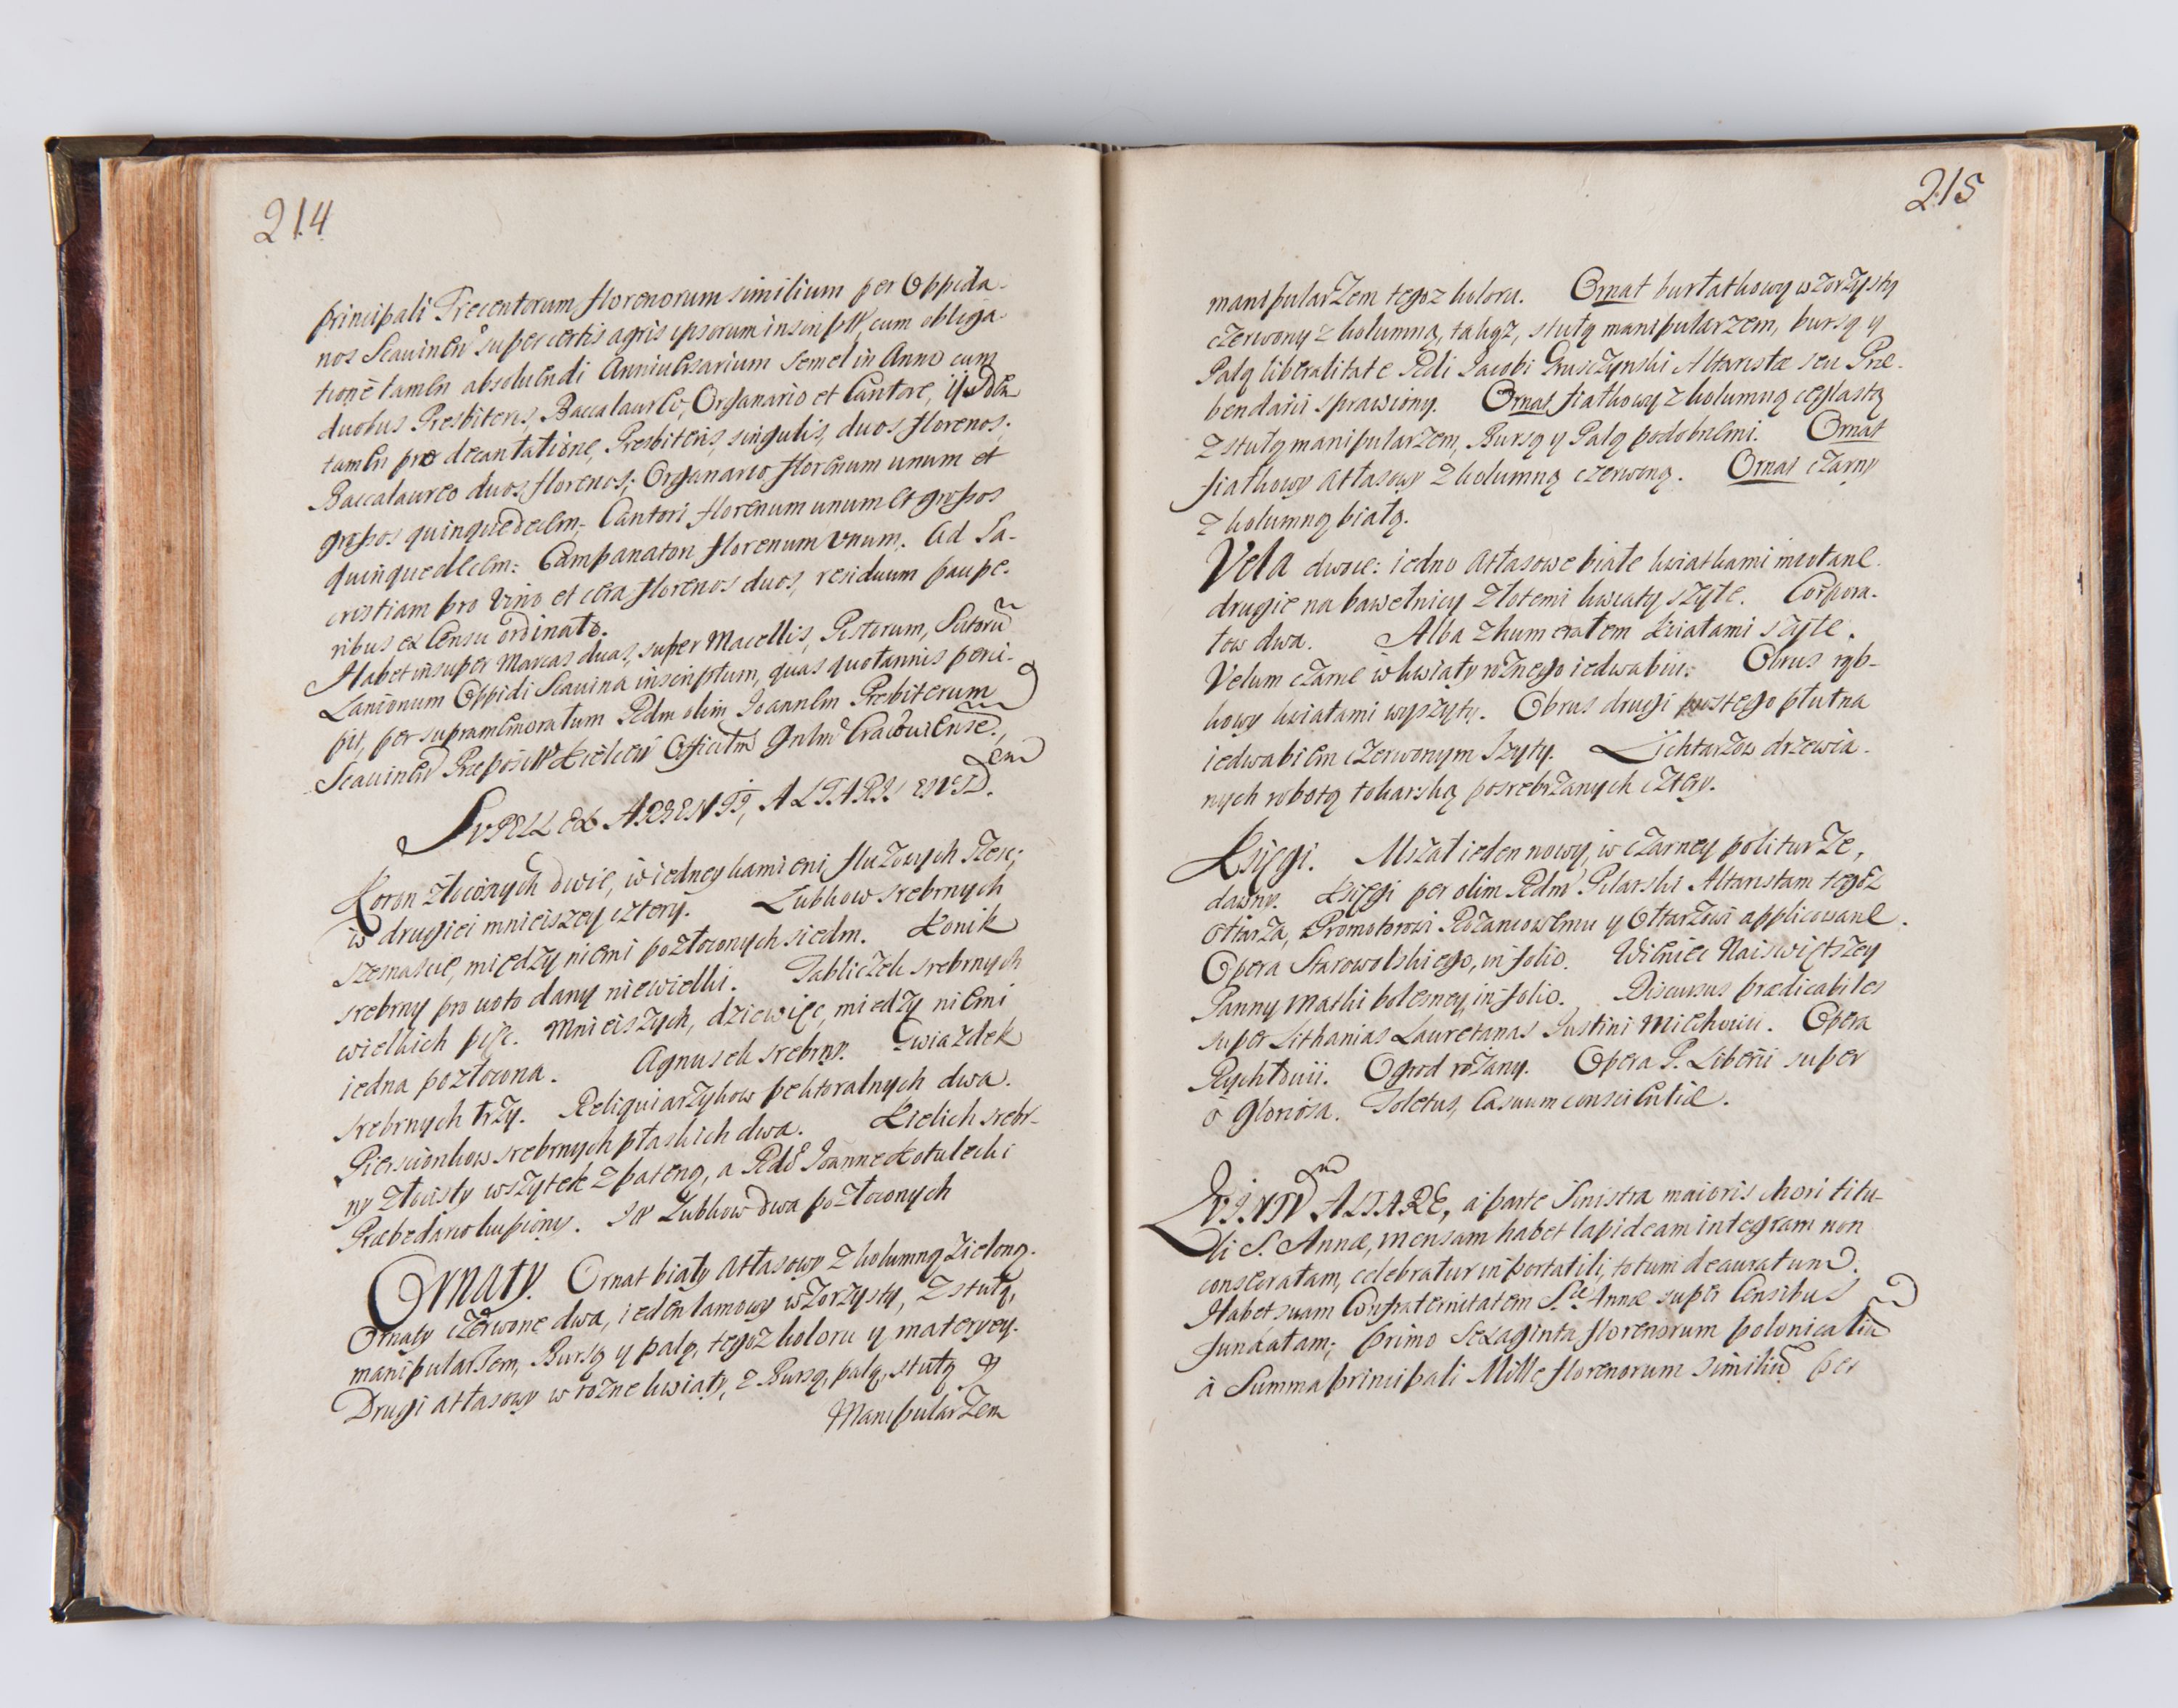 214
principali Trecentorum florenorum similium per Oppida-
nos Scavinen̄ super certis agris ipsorum inscript, cum obliga-
tione tamen absoluendi Anniuersarium semel in Anno cum
duobus Presbiteris, Baccalaureo, Organario et Cantore, ijsdem
tamen pro decantatione, Presbiteris, singulis, duos florenos;
Baccalaureo duos florenos; Organario florenum unum et
grossos quinquedecem; Cantori florenum unum et grossos
quinquedecem: Campanatori florenum vnum. Ad Sa-
cristiam pro vino et cera florenos duos, residuum paupe-
ribus ex Censu ordinato.
Habet insuper Marcas duas, super Macellis, Pistorum, Sutorū
Lanionum Oppidi Scavina inscriptum, quas quotannis perci-
pit, per supramemoratum Rdm olim Joannem Presbiterum
Scauinen̄ Præposit Kielcen̄ Officialm̄ Gnlm̄ Cracouiense.
SVPELLEX ARGENTI, ALTARIS EIVSDem
Koron złoconych dwie, w iedney kamieni służonych szesc;
w drugiei mnieiszey cztery. Lubkow srebrnych
szesnascie, między niemi pozłoconych siedm. Konik
srebrny pro uoto dany niewielki. Tabliczek srebrnych
wielkich pięc. Mnieiszych, dziewięc, miedzy niemi
iedna pozłocona. Agnusek srebrny. Gwiazdek
srebrnych trzy. Reliquiarzykow pektoralnych dwa.
Pierscionkow srebrnych płaskich dwa. Kielich srebr-
ny złocisty wszytek z pateną, a Rdō Joanne Kotulecki
Præbedario kupiony. It Lubkow dwa pozłoconych
Ornaty. Ornat biały Atłasowy z kolumną zieloną.
Ornaty czerwone dwa, ieden lamowy wzorzysty, z stułą,
manipularzem, Bursą y palą, tegoz koloru y materyey.
Drugi atłasowy w rożne kwiaty, z Bursą, palą, stułą y
Manipularzem
215
manipularzem tegoz koloru. Ornat burkatkowy wzorzysty
czerwony z kolumną, takąz, stułą manipularzem, bursą y
Palą liberalitate Rdi Jacobi Gruszczynski Altaristæ seu Præ-
bendarii sprawiony. Ornat fiatkowy z kolumną ceglastą
z stułą manipularzem, Bursą y Palą podobnemi. Ornat
fiatkowy atłasowy z kolumną czerwoną. Ornat czarny
z kolumną białą.
Vela dwoie: iedno atłasowe białe kwiatkami miotane
drugie na bawełnicy złotemi kwiaty szyte. Corpora-
łow dwa. Alba z humerałem kwiatami szyte.
Velum czarne w kwiaty rożnego iedwabiu: Obrus rąb-
kowy kwiatami wyszyty. Obrus drugi prostego płutna
iedwabiem czerwonym szyty. Lichtarzow drzewia-
nych robotą tokarską posrebrzanych cztery.
Księgi. Mszał ieden nowy, w czarney politurze,
dawny. Księgi per olim Rdm Pilarski Altaristam tegoż
Ołtarza, Promotorowi Rożancowemu y Ołtarzowi applicowane.
Opera Starowolskiego, in folio. Wieniec Naiswiętszey
Panny Matki bolesney, in folio. Discursus prædicabiles
super Lithanias Lauretanas Justini Miechouii. Opera
Rychłouii. Ogrod rożany. Opera P. Liberii super
o Gloriosa. Toletus, Casuum conscientiæ.
QVINTVm ALTARE, a parte sinistra maioris chori titu-
li S. Annæ, mensam habet lapideam integram non
consecratam, celebratur in portatili, totum deauratum.
Habet suam Confraternitatem Stæ Annæ super Censibus
fundatam; primo Sexaginta florenorum polonicaliū
à Summa principali Mille florenorum similiū per